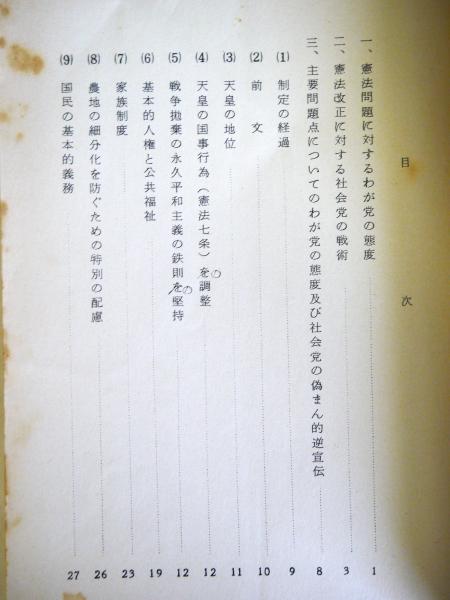 目次
一、憲法問題に対するわが党の態度 1
二、憲法改正に対する社会党の戦術 3
三、主要問題点についてのわが党の態度及び社会党の偽まん的逆宣伝 8
(1) 制定の経過 9
(2) 前文 10
(3) 天皇の地位 11
(4) 天皇の国事行為(憲法七条)を調整 12
の
(5) 戦争拋棄の永久平和主義の鉄則を堅持 12
の
(6) 基本的人権と公共福祉 19
(7) 家族制度 23
(8) 農地の細分化を防ぐための特別の配慮 26
(9) 国民の基本的義務 27